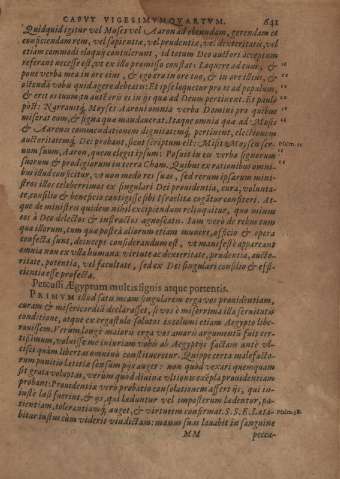 CAPVT VIGESIMVMQVARTVM. 641
Quidquid igitur vel Moses vel Aaron ad obeundam, gerendam et
conficiendam rem, vel sapientia, vel prudentia, vel dexteritatis, vel
etiam commodi eloquij contulerunt, id totum Deo auctori acceptum
referant necesse est, vt ex illo promisso constat: Loquere ad eum, &
pone verba mea in ore eius, & ego ero in ore tuo, & in ore illius, &
ostendã vobis quid agere debeatis: Et ipse loquetur pro te ad populum,
& erit os tuum: tu autem eris ei in his quæ ad Deum pertinent. Et paulo
pòst: Narrauitq́, Moyses Aaroni omnia verba Domini pro quibus
miserat eum, & signa quæ mandauerat. Itaque omnia quæ ad Mosis
& Aaronis commendationem dignitatemq́; pertinent, electionem
auctoritatemq́; Dei probant, sicut scriptum est: Misit Moysen ser-
num suum, Aaron, quem elegit ipsum: Posuit in eis verba signorum
suorum & prodigiorum in terra Cham. Quibus ex rationibus omni-
bus illud conficitur, vt non modo res suas, sed rerum ipsarum mini-
stros illos celeberrimos ex singulari Dei prouidentia, cura, volunta-
te, consilio & beneficio contigisse sibi Israelitæ cogitur confiteri. At-
que de ministris quidem nihil excipiendum relinquitur, quo minus
eos à Deo delectos & instructos agnoscatis. Iam verò de rebus cùm
quæ illorum, tum quæ posteà aliorum etiam munere, officio & opera
confecta sunt, deinceps considerandum est, vt manifestè appareant
omnia non ex vlla humana virtute ac dexteritate, prudentia, aucto-
ritate, potentia, vel facultate, sed ex Dei singulari consilio & effi-
cientia esse profecta.
Percussi Ægyptum multis signis atque portentis.
PRIMVM illud satis meam singularem erga vos prouidentiam,
curam & misericordiã declarasset, si vos è miserrima illa seruitutis
conditione, atque ex ergastulo solutos incolumi etiam Aegypto libe-
rauissem. Verùm longè maioris erga vos amoris argumentũ fuit cer-
tissimum, voluisse me iniuriam vobis ab Aegyptijs factam antè vl-
cisci quàm libertas omnino constitueretur. Quippe certa malefacto-
rum punitio lætitiæ sensum pijs auget: non quòd vexari quemquam
sit grata voluptas, verùm quòd diuina vltionis exẽpla prouidentiam
probant: Prouidentiæ verò probatio consolationem affert ijs, qui in-
iustè læsi fuerint, & ijs, qui læduntur vel impostorum lædentur, pa-
tientiam, tolerantiamq́; auget, & virtutem confirmat. S. S. E. Læta-
bitur iustus cùm viderit vindictam: manus suas lauabit in sanguine
MM pecca-